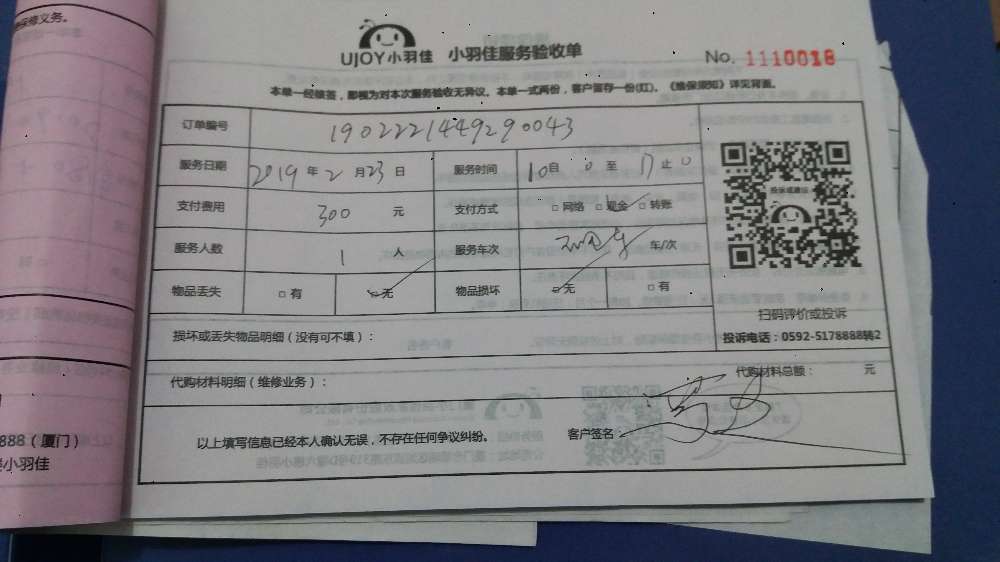 保修义务。
UJOY小羽佳 小羽佳服务验收单 No. 1110018
本单一经签签，即视为对本次服务验收无异议。本单一式两份，客户留存一份(红)。《维保须知》详见背面。
订单编号 1902221449290043
服务日期 2019 年 2 月 23 日 服务时间 10 自 0 至 17 止 0
支付费用 300 元 支付方式 □网络 □现金 □转账
服务人数 1 人 服务车次 车/次
投诉或建议
物品丢失 □有 □无 物品损坏 □无 □有
扫码评价或投诉
损坏或丢失物品明细（没有可不填）： 投诉电话：0592-5178888转2
代购材料明细（维修业务）： 代购材料总额： 元
以上填写信息已经本人确认无误，不存在任何争议纠纷。 客户签名：
888（厦门）
小羽佳